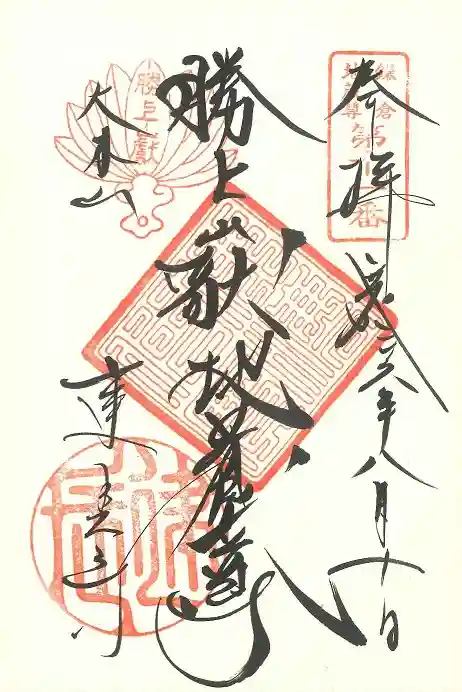 鎌倉
地蔵尊
第十一番
奉拝 平成二六年八月十日
勝上嶽地蔵尊
勝上嶽
大本山
建長寺